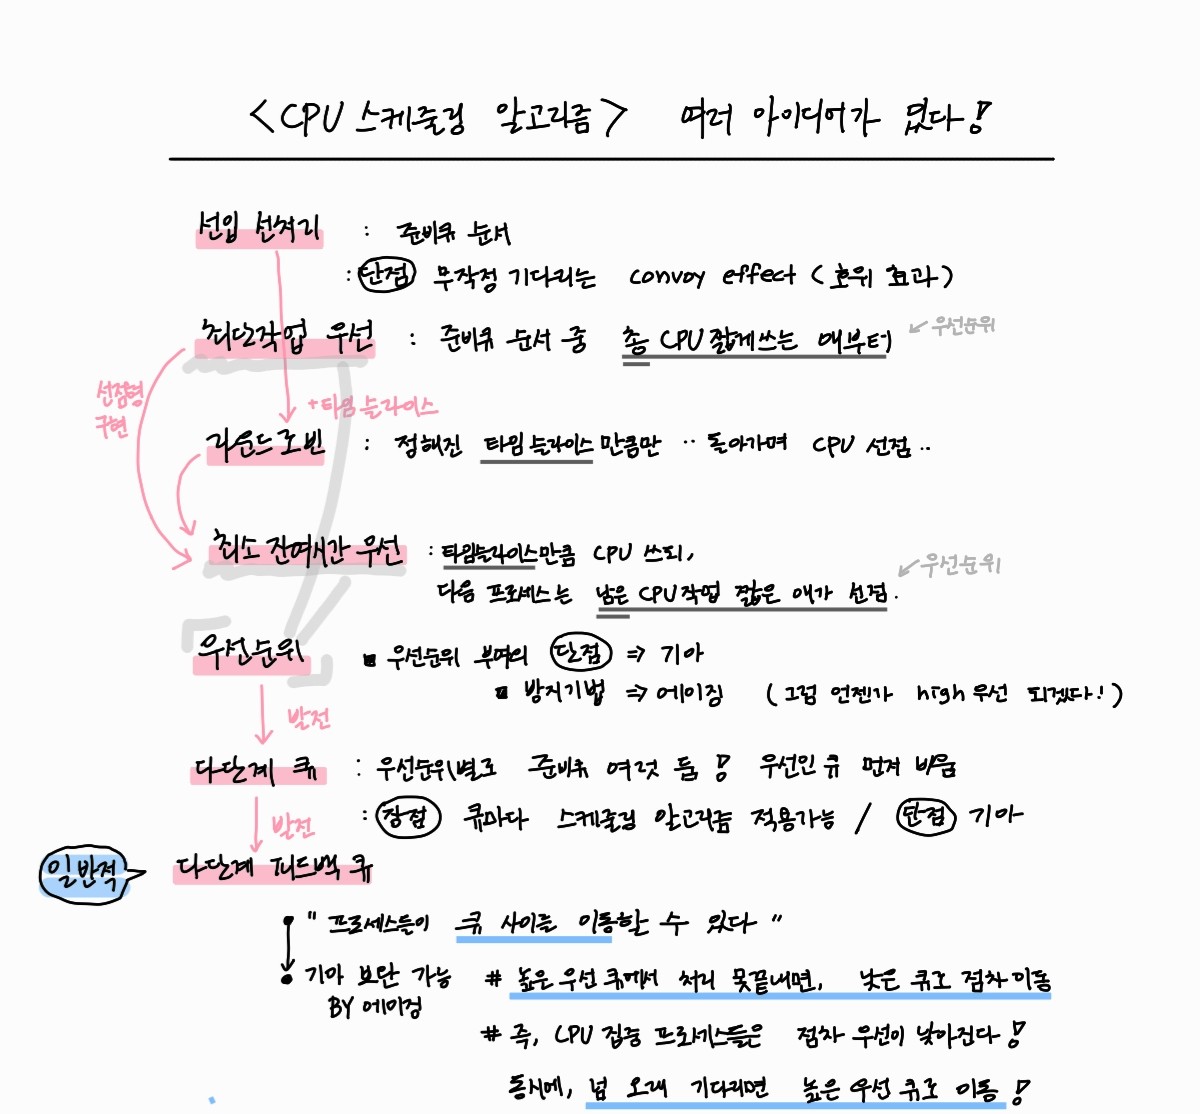 <CPU 스케줄링 알고리즘> 여러 아이디어가 였다!
선입 선처리 : 준비큐 순서
: 단점 무작정 기다리는 convoy effect (호위 효과)
최단작업 우선 : 준비큐 순서 중 총 CPU 짧게쓰는 애부터 ↙ 우선순위
선점형
구현
+타임 슬라이스
라운드 로빈 : 정해진 타임 슬라이스 만큼만 ·· 돌아가며 CPU 선점 ..
최소 잔여시간 우선 : 타임슬라이스만큼 CPU 쓰되,
다음 프로세스는 남은 CPU 작업 짧은 애가 선점. ↙ 우선순위
우선순위 ▪ 우선순위 부여의 단점 => 기아
▪ 방지기법 => 에이징 (그럼 언젠가 high 우선 되겠다!)
발전
다단계 큐 : 우선순위별로 준비큐 여럿 둠! 우선인 큐 먼저 비움
: 장점 큐마다 스케줄링 알고리즘 적용가능 / 단점 기아
발전
일반적 다단계 피드백 큐
" 프로세스들이 큐 사이를 이동할 수 있다 "
기아 보완 가능 # 높은 우선 큐에서 처리 못끝내면, 낮은 큐로 점차 이동
BY 에이징
# 즉, CPU 집중 프로세스들은 점차 우선이 낮아진다!
동시에, 넘 오래 기다리면 높은 우선 큐로 이동!